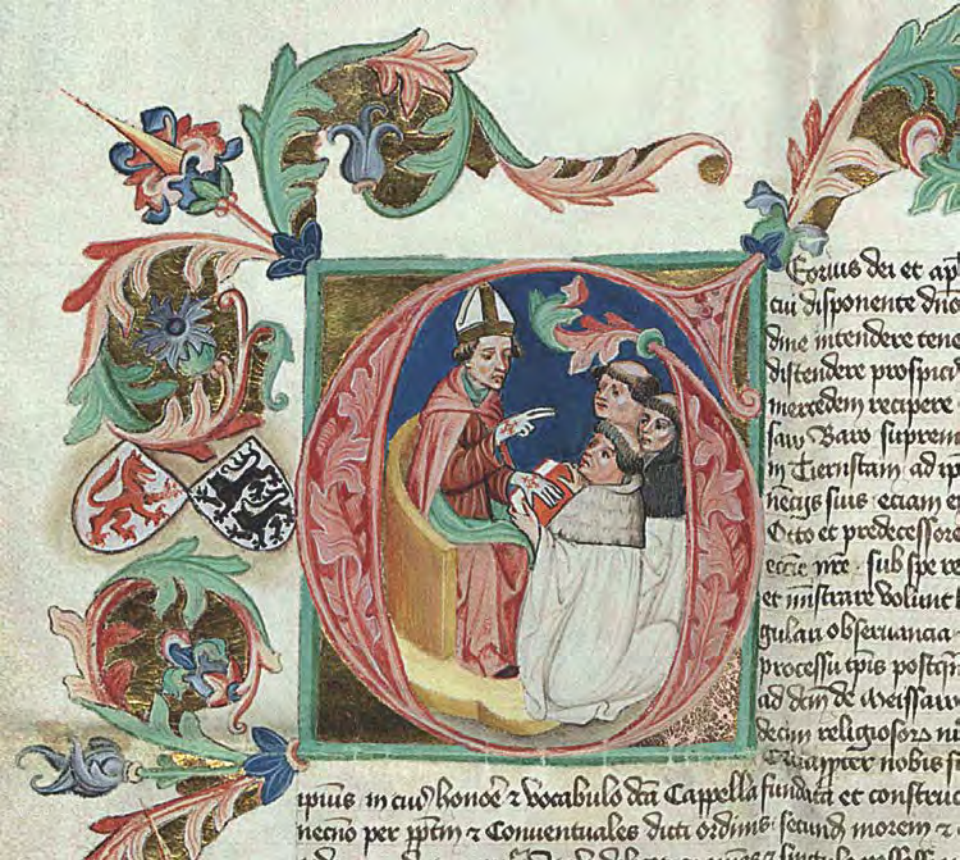 Georius dei et ap
cui disponente dno
dine intendere tene
distendere prospici
mercedem recipere
saw Baro suprem
in Tiernstain ad ip
necys suis eciam e
Otto et predecessore
eccie nre sub spe re
et ministrare volunt
gulari observancia
processu tpis postqm
ad dcm de Meissaw
decim religiosorz nu
Quapter nobis s
ipius in cuius honore z vocabulo dca Cappella fundata et construc
necno per pptm z Conuentuales dicti ordinis secund morem z